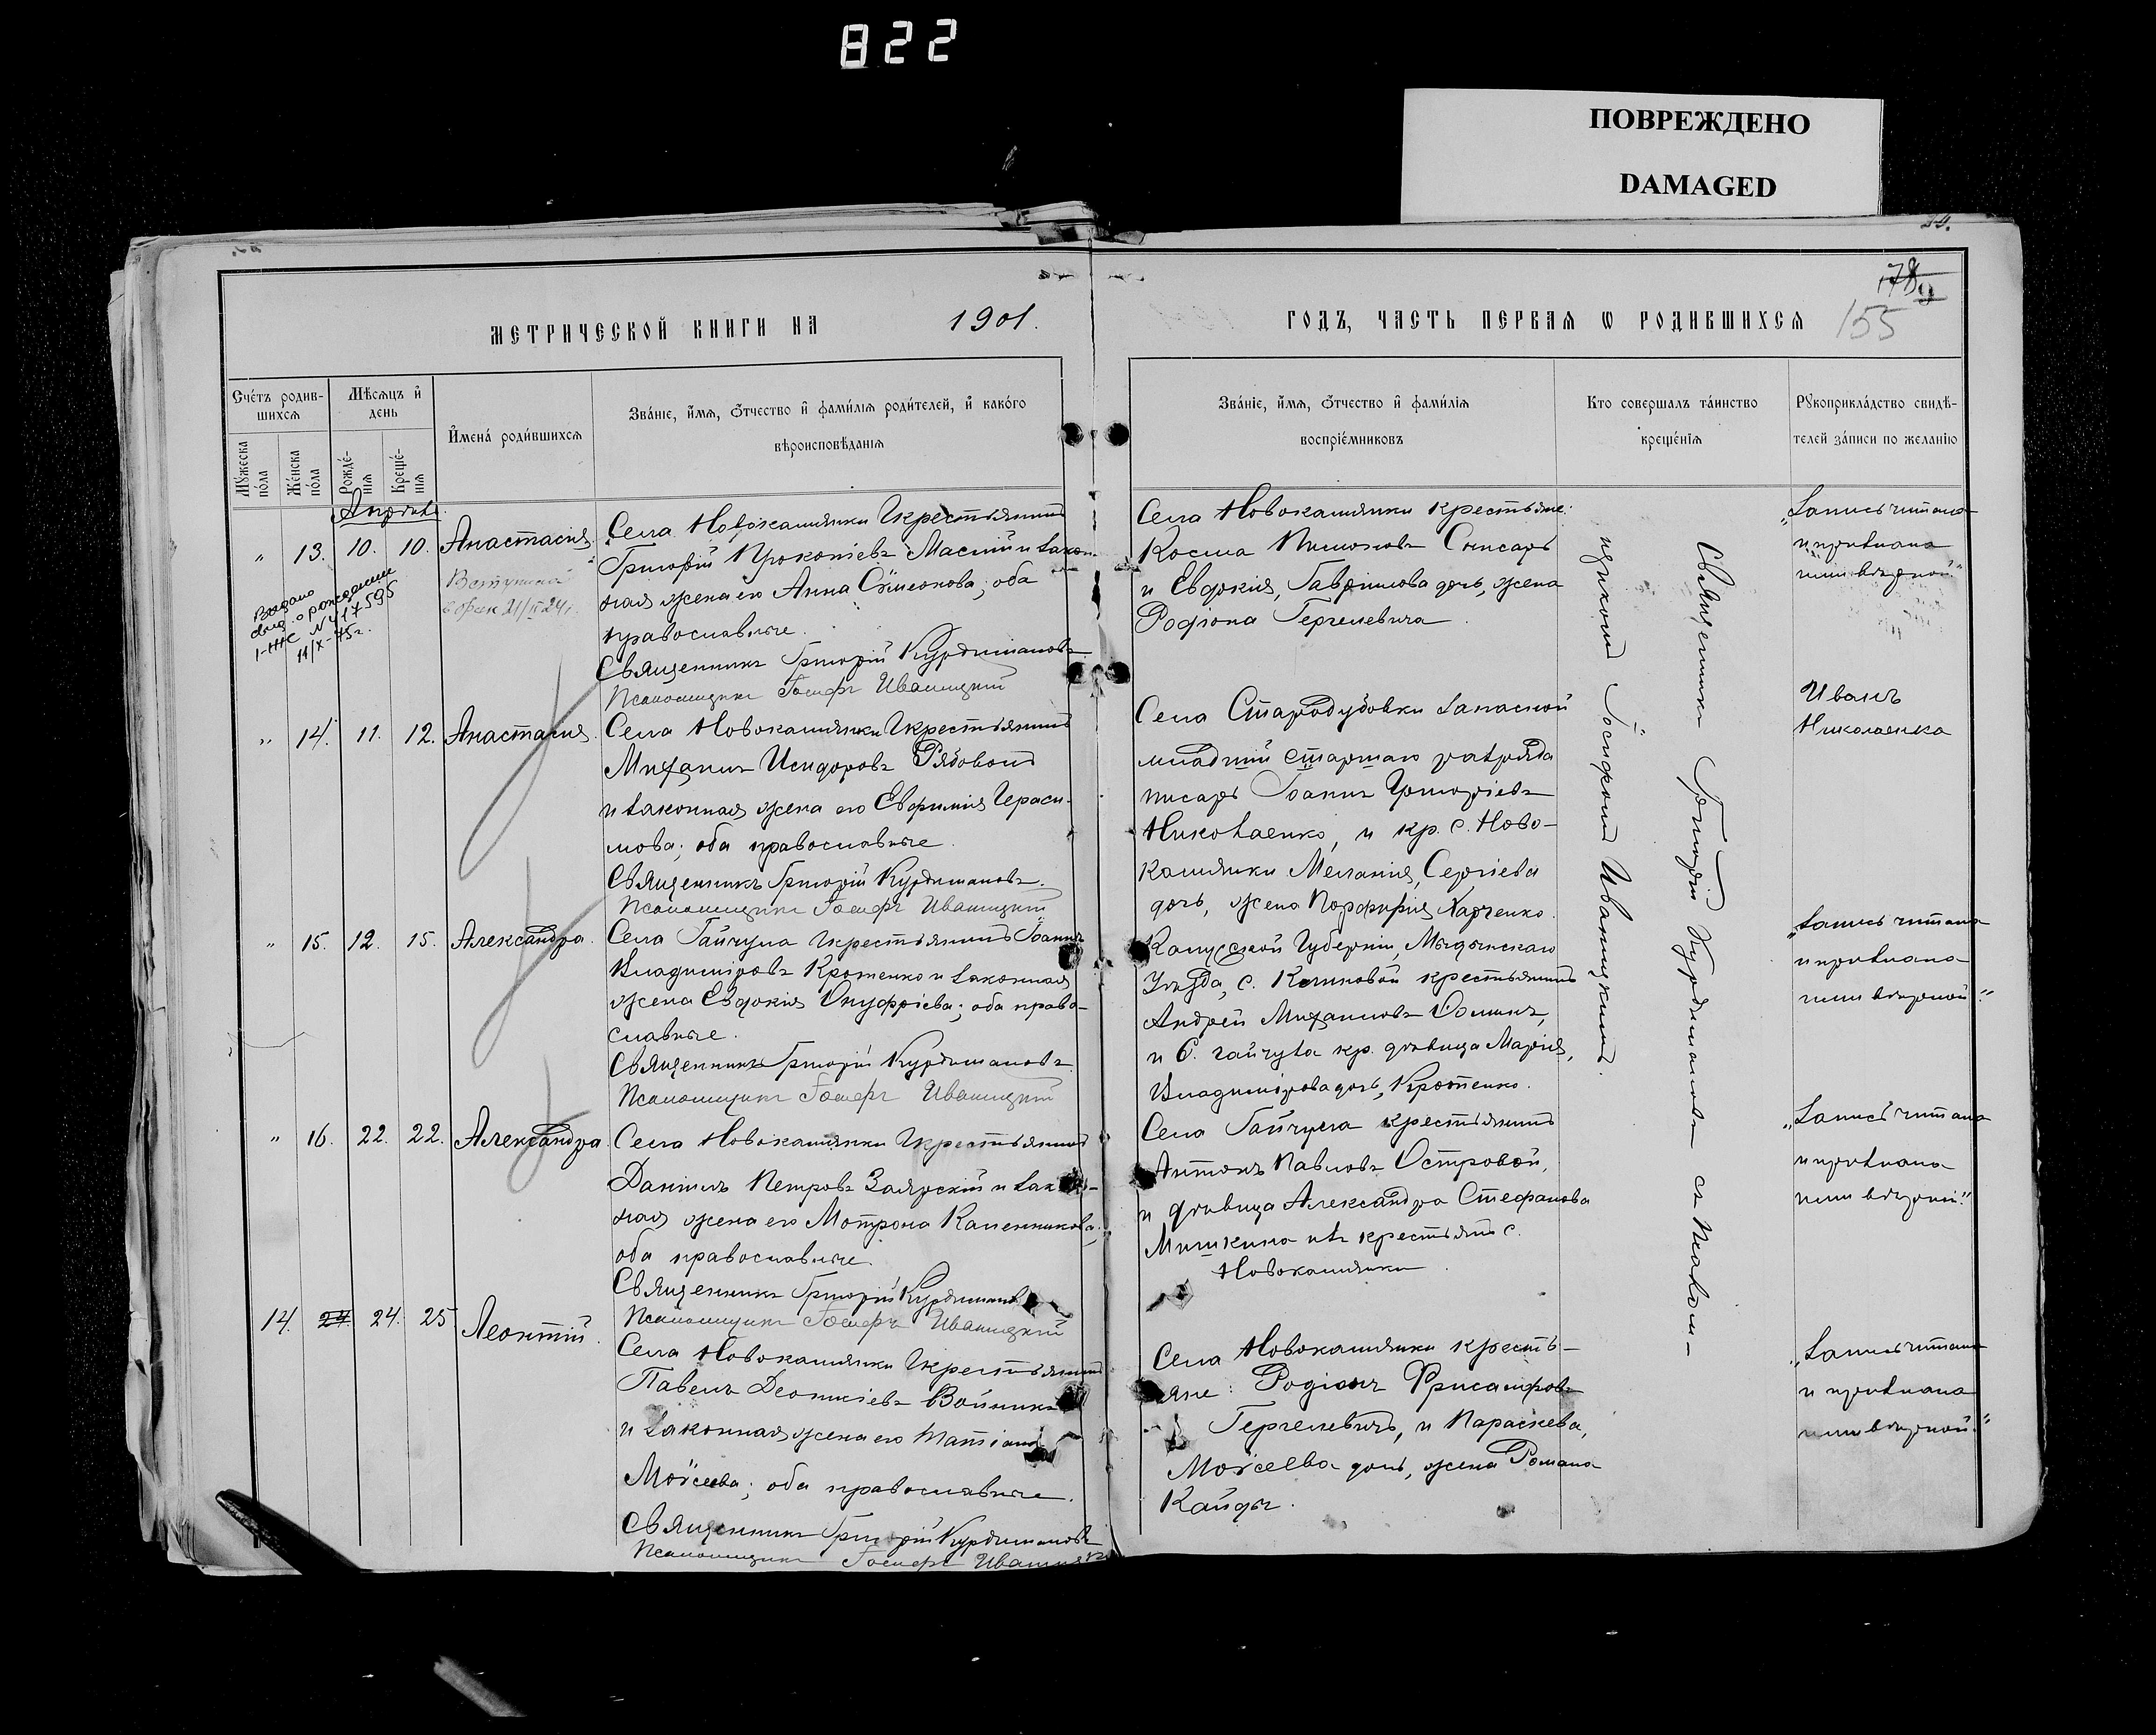 822
ПОВРЕЖДЕНО
DAMAGED
24.
155
МЕТРИЧЕСКОЙ КНИГИ НА 1901.
ГОДЪ, ЧАСТЬ ПЕРВАЯ Ѡ РОДИВШИХСЯ
Счétъ родив-
шихся
Мѣсяцъ и
день
Мужеска пола
Женска пола
Рожде-
нія
Креще-
нія
Имена родившихся
Званіе, имя, отчество и фамилія родителей, и какого
вѣроисповѣданія
Званіе, имя, отчество и фамилія
воспріемниковъ
Кто совершалъ таинство
крещенія
Рукоприкладство свидѣ-
телей записи по желанію
Апрѣль.
" 13. 10. 10. Анастасія.
Выдано
свид. о рождении
I-ЖС N 417595
11/X-75г.
Села Новокамянки крестьянинъ
Григорій Прокопіевъ Маслий и закон-
ная жена его Анна Симеонова; оба
православные.
Священникъ Григорій Курдимановъ
Псаломщикъ Іосифъ Иваницкій
Села Новокамянки крестьяне:
Косма Пимоновъ Снисарь
и Евдокія, Гавріилова дочь, жена
Родіона Гергелевича.
"Запись читана
и признана
ими вѣрной"
" 14. 11. 12. Анастасія.
Села Новокамянки крестьянинъ
Михаилъ Исидоровъ Рябовонъ
и законная жена его Евфимія Гераси-
мова; оба православные.
Священникъ Григорій Курдимановъ.
Псаломщикъ Іосифъ Иваницкій
Села Стародубовки запасной
младшій старшаго разряда
писарь Іоаннъ Григоріевъ
Николаенко, и кр. с. Ново-
камянки Меланія, Сергіева
дочь, жена Порфирія Харченко.
Иванъ
Николаенко
" 15. 12. 15. Александра.
Села Гайчула крестьянинъ Іоаннъ
Владиміровъ Кротенко и законная
жена Евдокія Онуфріева; оба право-
славные.
Священникъ Григорій Курдимановъ
Псаломщикъ Іосифъ Иваницкій
Калужской Губерніи, Мядынскаго
Уѣзда, с. крестьянинъ
Андрей Михаиловъ
и С. Гайчула кр. дѣвица Марія,
Владимірова дочь, Кротенко.
"Запись читана
и признана
ими вѣрной."
" 16. 22. 22. Александра.
Села Новокамянки крестьянинъ
Даніилъ Петровъ Заярскій и закон-
ная жена его Мотрона Калинникова;
оба православные.
Священникъ Григорій Курдимановъ
Псаломщикъ Іосифъ Иваницкій
Села Гайчула крестьянинъ
Антонъ Павловъ Островой,
и дѣвица Александра Стефанова
Мишкина изъ крестьянъ с.
Новокамянки.
"Запись читана
и признана
ими вѣрной."
14. 24. 25 Леонтій.
Села Новокамянки крестьянинъ
Павелъ Леонтіевъ
и законная жена его Татіана
Моѵсеева; оба православные.
Священникъ Григорій Курдимановъ
Псаломщикъ Іосифъ Иваницкій
Села Новокамянки кресть-
яне: Родіонъ Хрисанфовъ
Гергелевичъ, и Параскева,
Моѵсеева дочь, жена Романа
Кайды.
"Запись читана
и признана
ими вѣрной."
Священникъ Григорій Курдимановъ съ Псалом-
щикомъ Іосифомъ Иваницкимъ.